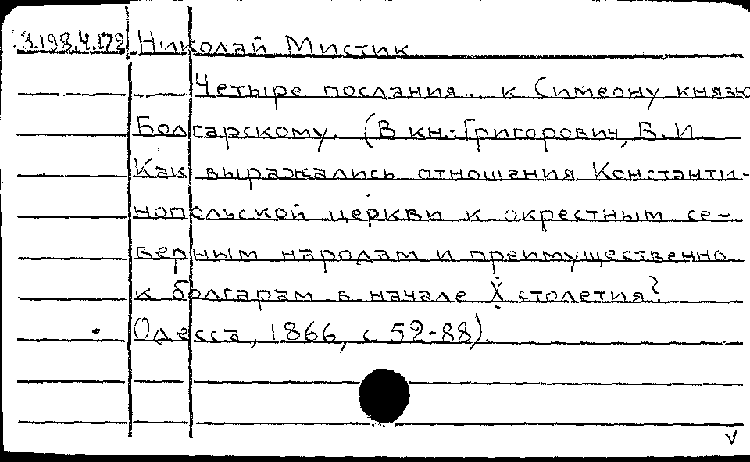 3.198.4.172 Николай Мистик
Четыре послания.. к Симеону князю
Болгарскому. (В кн.: Григорович, В.И.
Как выражались отношения Константи-
нопольской церкви к окрестным се-
верным народам и преимущественно
к болгарам в начале X столетия?
Одесса, 1866, с 52-88).
V